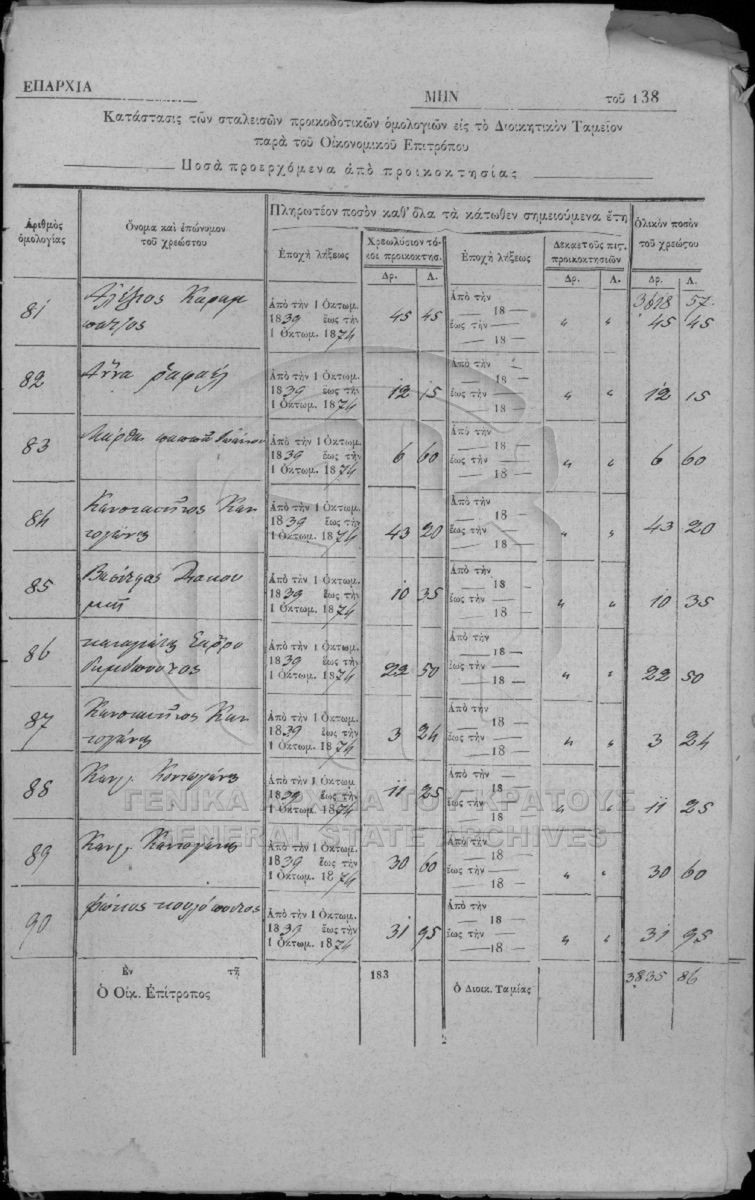 ΕΠΑΡΧΙΑ ΜΗΝ τοῦ 138
Κατάστασις τῶν σταλεισῶν προικοδοτικῶν ὁμολογιῶν εἰς τὸ Διοικητικὸν Ταμεῖον
παρὰ τοῦ Οἰκονομικοῦ Ἐπιτρόπου
Ποσὰ προερχόμενα ἀπὸ προικοκτησίας
Πληρωτέον ποσὸν καθ' ὅλα τὰ κάτωθεν σημειούμενα ἔτη
Ἀριθμὸς ὁμολογίας Ὄνομα καὶ ἐπώνυμον τοῦ χρεώστου Ἐποχὴ λήξεως Χρεωλύσιον τόκοι προικοκτησ. Ἐποχὴ λήξεως Δεκαετοῦς πιστ. προικοκτησιῶν Ὁλικὸν ποσὸν τοῦ χρεώστου
Δρ. Λ. Δρ. Λ. Δρ. Λ.
3618 57
81 Ἀλέξιος Ἀπὸ τὴν 1 Ὀκτωμ. 1839 ἕως τὴν 1 Ὀκτωμ. 1874 45 45 Ἀπὸ τὴν 18 ἕως τὴν 18 〃 〃 45 45
82 Ἄννα Ἀπὸ τὴν 1 Ὀκτωμ. 1839 ἕως τὴν 1 Ὀκτωμ. 1874 12 15 Ἀπὸ τὴν 18 ἕως τὴν 18 〃 〃 12 15
83 Μάρθα Ἀπὸ τὴν 1 Ὀκτωμ. 1839 ἕως τὴν 1 Ὀκτωμ. 1874 6 60 Ἀπὸ τὴν 18 ἕως τὴν 18 〃 〃 6 60
84 Κωνσταντῖνος Ἀπὸ τὴν 1 Ὀκτωμ. 1839 ἕως τὴν 1 Ὀκτωμ. 1874 43 20 Ἀπὸ τὴν 18 ἕως τὴν 18 〃 〃 43 20
85 Ἀπὸ τὴν 1 Ὀκτωμ. 1839 ἕως τὴν 1 Ὀκτωμ. 1874 10 35 Ἀπὸ τὴν 18 ἕως τὴν 18 〃 〃 10 35
86 Ἀπὸ τὴν 1 Ὀκτωμ. 1839 ἕως τὴν 1 Ὀκτωμ. 1874 22 50 Ἀπὸ τὴν 18 ἕως τὴν 18 〃 〃 22 50
87 Κωνσταντῖνος Ἀπὸ τὴν 1 Ὀκτωμ. 1839 ἕως τὴν 1 Ὀκτωμ. 1874 3 24 Ἀπὸ τὴν 18 ἕως τὴν 18 〃 〃 3 24
88 Ἀπὸ τὴν 1 Ὀκτωμ. 1839 ἕως τὴν 1 Ὀκτωμ. 1874 11 25 Ἀπὸ τὴν 18 ἕως τὴν 18 〃 〃 11 25
ΓΕΝΙΚΑ ΑΡΧΕΙΑ ΤΟΥ ΚΡΑΤΟΥΣ
GENERAL STATE ARCHIVES
89 Ἀπὸ τὴν 1 Ὀκτωμ. 1839 ἕως τὴν 1 Ὀκτωμ. 1874 30 60 Ἀπὸ τὴν 18 ἕως τὴν 18 〃 〃 30 60
90 Φώτιος Ἀπὸ τὴν 1 Ὀκτωμ. 1839 ἕως τὴν 1 Ὀκτωμ. 1874 31 95 Ἀπὸ τὴν 18 ἕως τὴν 18 〃 〃 31 95
Ἐν τῇ 183 3835 86
Ὁ Οἰκ. Ἐπίτροπος Ὁ Διοικ. Ταμίας